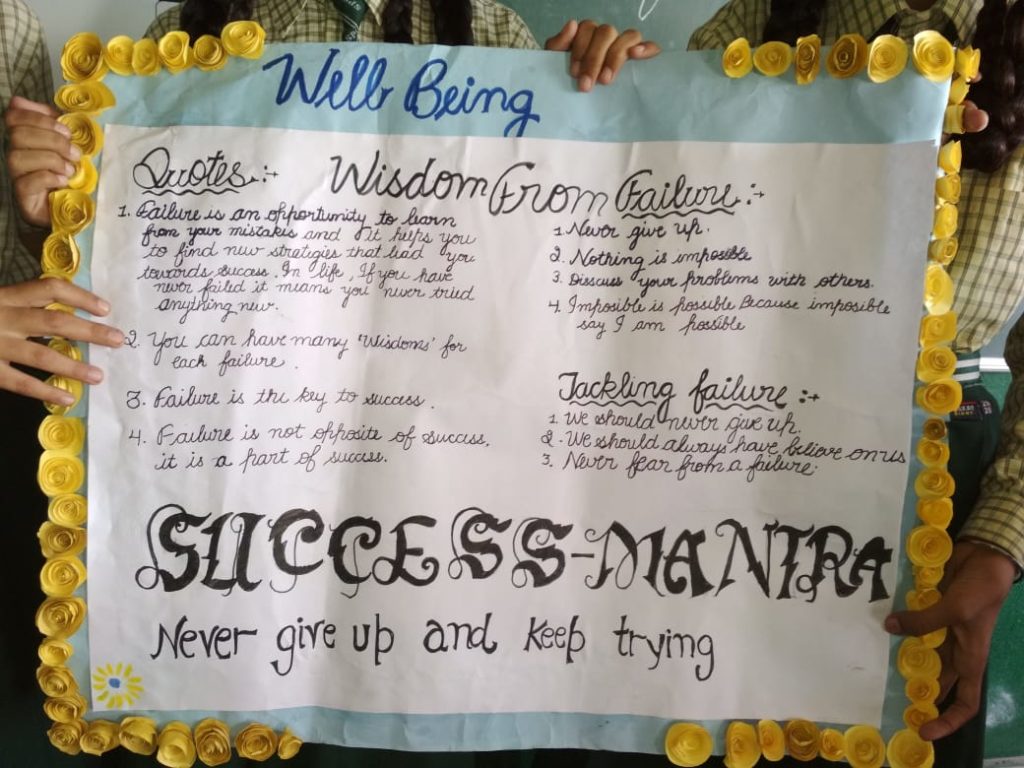 Well Being
Wisdom From Failure :→
Quotes :→
1. Failure is an opportunity to learn
from your mistakes and it helps you
to find new strategies that lead you
towards success. In life, If you have
never failed it means you never tried
anything new.
2. You can have many 'Wisdoms' for
each failure.
3. Failure is the key to success.
4. Failure is not opposite of success,
it is a part of success.
1. Never give up.
2. Nothing is impossible
3. Disscuss your problems with others.
4 Imposible is possible Because imposible
say I am possible
Tackling failure :→
1. We should never give up.
2. We should always have believe on us
3. Never fear from a failure.
SUCCESS-MANTRA
Never give up and keep trying